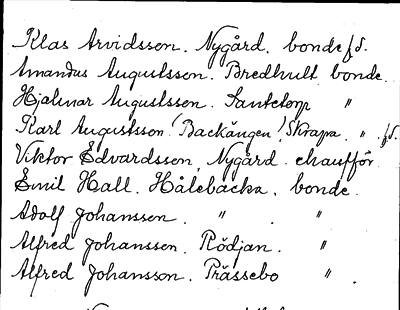 Klas Arvidsson. Nygård. bonde f.d.
Amandus Augustsson. Bredhult bonde.
Hjalmar Augustsson. Santetorp "
Karl Augustsson (Backängen) Skrapa. " f.d.
Viktor Edvardsson, Nygård. chaufför.
Emil Hall. Hålebacka. bonde.
Adolf Johansson. " "
Alfred Johansson. Rödjan. "
Alfred Johansson. Prässebo " .